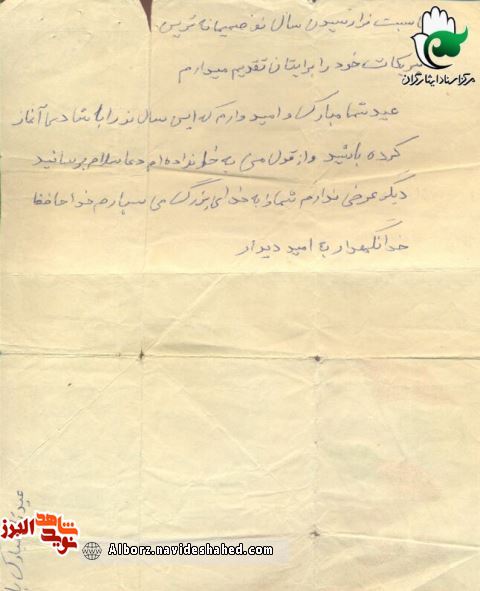 سبت فرارسیدن سال نو صمیمانه ترین
تبریکات خود را برایتان تقدیم میدارم
عید شما مبارک و امیدوارم که این سال نو را با شادی آغاز
کرده باشید و از قول من به خانواده ام دعا سلام برسانید
دیگر عرضی ندارم شما را به خدای بزرگ می سپارم خداحافظ
خدانگهدار به امید دیدار
مرکز اسناد ایثارگران
نوید شاهد البرز
Alborz.navideshahed.com